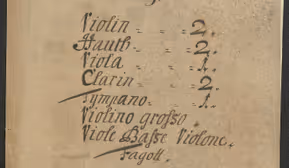 Violin - - - 2.
Hautb - - - 2.
Viola - - - 1.
Clarin - - - 2.
Tympano - - 1.
Violino grosso.
Viole Basse Violone.
Fagott.